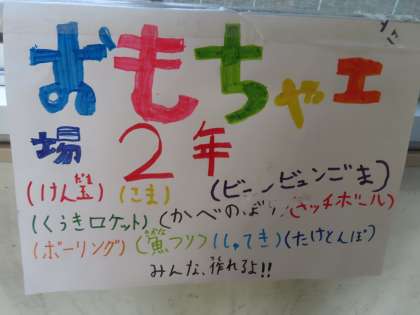 おもちゃエ
場 2年
(けん玉) (こま) (ビュンビュンごま)
(くうきロケット) (かべのぼり) (キャッチボール)
(ボーリング) (魚つり) (しゃてき) (たけとんぼ)
みんな、作れるよ!!